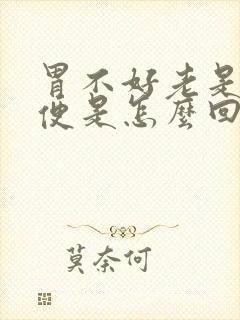 胃不好老是
便是怎麼回
莫奈何